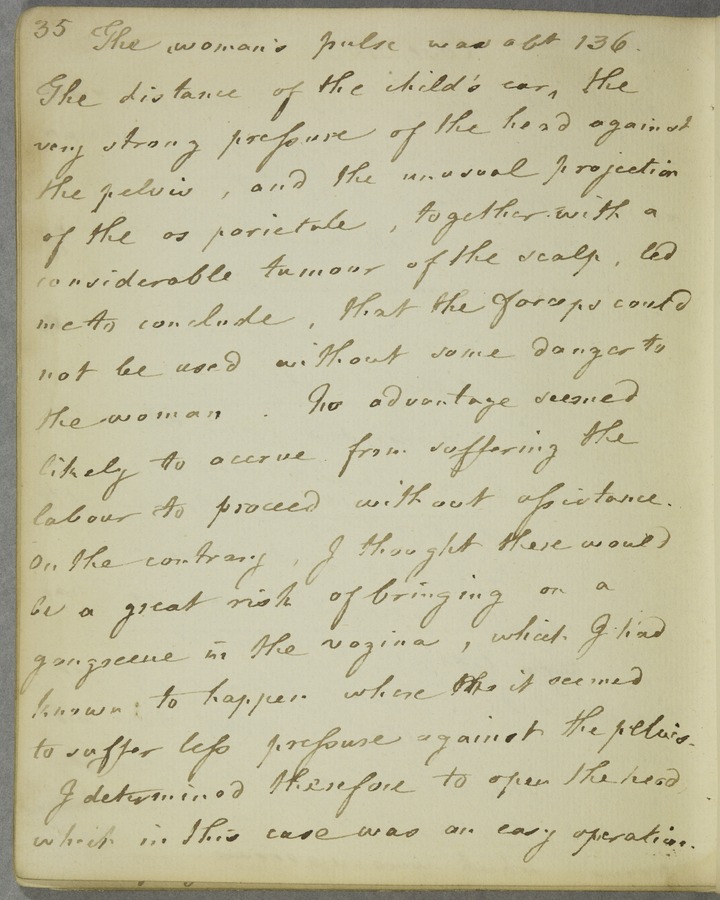 35 The woman's pulse was abt 136.
The distance of the child's ear, the
very strong pressure of the head against
the pelvis, and the unusual projection
of the os parietale, together with a
considerable tumour of the scalp, led
me to conclude, that the forceps could
not be used without some danger to
the woman. No advantage seemed
likely to accrue from suffering the
labour to proceed without assistance.
On the contrary, I thought there would
be a great risk of bringing on a
gangrene in the vagina, which I had
known to happen where it seemed
to suffer less pressure against the pelvis.
I determined therefore to open the head,
which in this case was an easy operation.